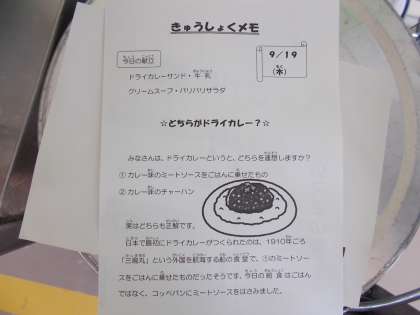 きゅうしょくメモ
今日の献立
9/19
(水)
ドライカレーサンド・牛乳
クリームスープ・パリパリサラダ
☆どちらがドライカレー?☆
みなさんは、ドライカレーというと、どちらを連想しますか?
①カレー味のミートソースをごはんに乗せたもの
②カレー味のチャーハン
実はどちらも正解です。
日本で最初にドライカレーがつくられたのは、1910年ごろ
「三嶋丸」という外国を航海する船の食堂で、①のミートソー
スをごはんに乗せたものだったそうです。今日の給食はごはん
ではなく、コッペパンにミートソースをはさみました。